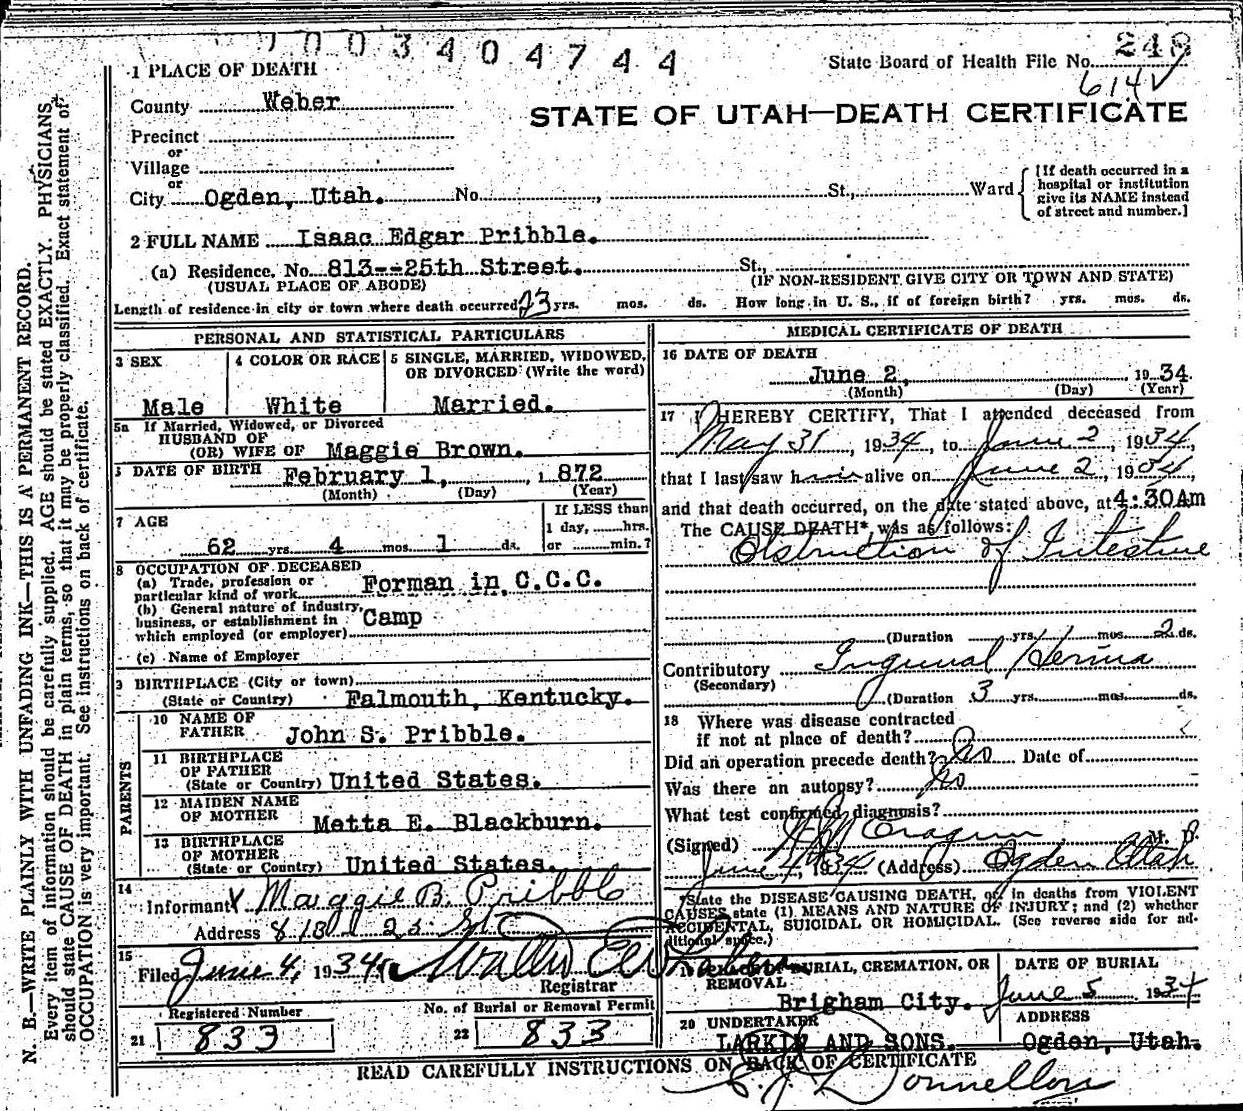 1003404744
State Board of Health File No. 248
614
1 PLACE OF DEATH
County Weber
STATE OF UTAH—DEATH CERTIFICATE
Precinct
or
Village
or
City Ogden, Utah. No. St., Ward
[If death occurred in a
hospital or institution
give its NAME instead
of street and number.]
2 FULL NAME Isaac Edgar Pribble.
(a) Residence, No. 813--25th Street. St.,
(USUAL PLACE OF ABODE) (IF NON-RESIDENT GIVE CITY OR TOWN AND STATE)
Length of residence in city or town where death occurred 23 yrs. mos. ds. How long in U. S., if of foreign birth? yrs. mos. ds.
PERSONAL AND STATISTICAL PARTICULARS
3 SEX
Male
4 COLOR OR RACE
White
5 SINGLE, MARRIED, WIDOWED,
OR DIVORCED (Write the word)
Married.
5a If Married, Widowed, or Divorced
HUSBAND OF
(OR) WIFE OF Maggie Brown.
DATE OF BIRTH February 1, , 1872
(Month) (Day) (Year)
7 AGE
62 yrs. 4 mos. 1 ds.
If LESS than
1 day, hrs.
or min.?
8 OCCUPATION OF DECEASED
(a) Trade, profession or
particular kind of work Forman in C.C.C.
(b) General nature of industry,
business, or establishment in Camp
which employed (or employer)
(c) Name of Employer
9 BIRTHPLACE (City or town)
(State or Country) Falmouth, Kentucky.
PARENTS
10 NAME OF
FATHER John S. Pribble.
11 BIRTHPLACE
OF FATHER
(State or Country) United States.
12 MAIDEN NAME
OF MOTHER Metta E. Blackburn.
13 BIRTHPLACE
OF MOTHER
(State or Country) United States.
14
Informant X Maggie B. Pribble
Address 813 25 St
15
Filed June 4, 1934
Registrar
Registered Number
21 833
No. of Burial or Removal Permit
22 833
MEDICAL CERTIFICATE OF DEATH
16 DATE OF DEATH
June 2, 1934.
(Month) (Day) (Year)
17 I HEREBY CERTIFY, That I attended deceased from
May 31, 1934, to June 2, 1934,
that I last saw him alive on June 2, 1934,
and that death occurred, on the date stated above, at 4:30Am
The CAUSE DEATH*, was as follows:
Obstruction of Intestine
(Duration yrs. mos. 2 ds.
Contributory Inguinal Hernia
(Secondary)
(Duration 3 yrs. mos. ds.
18 Where was disease contracted
if not at place of death?
Did an operation precede death? No Date of
Was there an autopsy? No
What test confirmed diagnosis?
(Signed) Cragun M. D.
June 4, 1934 (Address) Ogden Utah
*State the DISEASE CAUSING DEATH, or, in deaths from VIOLENT
CAUSES state (1) MEANS AND NATURE OF INJURY; and (2) whether
ACCIDENTAL, SUICIDAL OR HOMICIDAL. (See reverse side for additional space.)
19 PLACE OF BURIAL, CREMATION, OR
REMOVAL
Brigham City.
DATE OF BURIAL
June 5 1934
20 UNDERTAKER
LARKIN AND SONS.
ADDRESS
Ogden, Utah.
READ CAREFULLY INSTRUCTIONS ON BACK OF CERTIFICATE
N. B.—WRITE PLAINLY WITH UNFADING INK—THIS IS A PERMANENT RECORD.
Every item of information should be carefully supplied. AGE should be stated EXACTLY. PHYSICIANS
should state CAUSE OF DEATH in plain terms, so that it may be properly classified. Exact statement of
OCCUPATION is very important. See instructions on back of certificate.